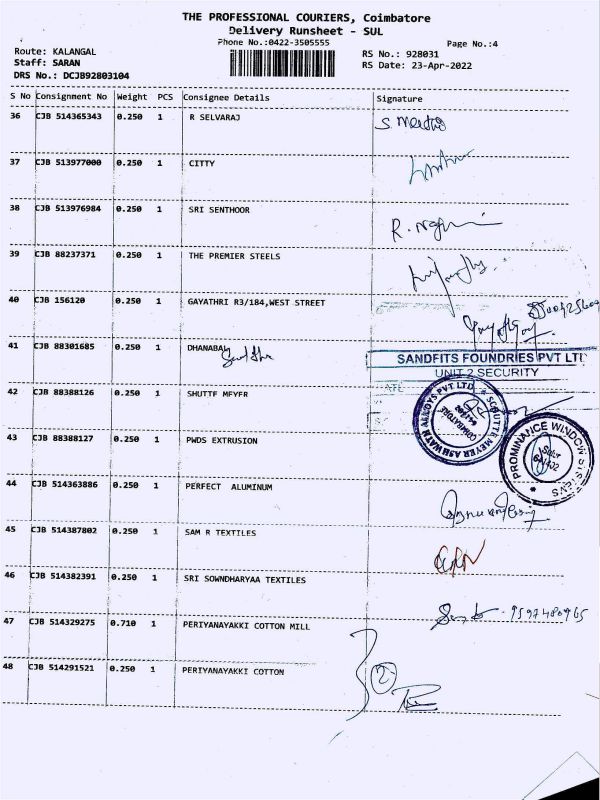 THE PROFESSIONAL COURIERS, Coimbatore
Delivery Runsheet - SUL
Phone No.:0422-3505555
Page No.:4
Route: KALANGAL
Staff: SARAN
DRS No.: DCJB92803104
RS No.: 928031
RS Date: 23-Apr-2022
S No Consignment No Weight PCS Consignee Details Signature
36 CJB 514365343 0.250 1 R SELVARAJ
37 CJB 513977000 0.250 1 CITTY
38 CJB 513976984 0.250 1 SRI SENTHOOR
39 CJB 88237371 0.250 1 THE PREMIER STEELS
40 CJB 156120 0.250 1 GAYATHRI R3/184,WEST STREET
41 CJB 88301685 0.250 1 DHANABAL
SANDFITS FOUNDRIES PVT LTD
UNIT 2 SECURITY
42 CJB 88388126 0.250 1 SHUTTF MFYFR
SCHUTTE MEYER ASHWATH ALLOYS PVT LTD
43 CJB 88388127 0.250 1 PWDS EXTRUSION
PROMINANCE WINDOW SYSTEMS
44 CJB 514363886 0.250 1 PERFECT ALUMINUM
45 CJB 514387802 0.250 1 SAM R TEXTILES
46 CJB 514382391 0.250 1 SRI SOWNDHARYAA TEXTILES
47 CJB 514329275 0.710 1 PERIYANAYAKKI COTTON MILL
48 CJB 514291521 0.250 1 PERIYANAYAKKI COTTON
2